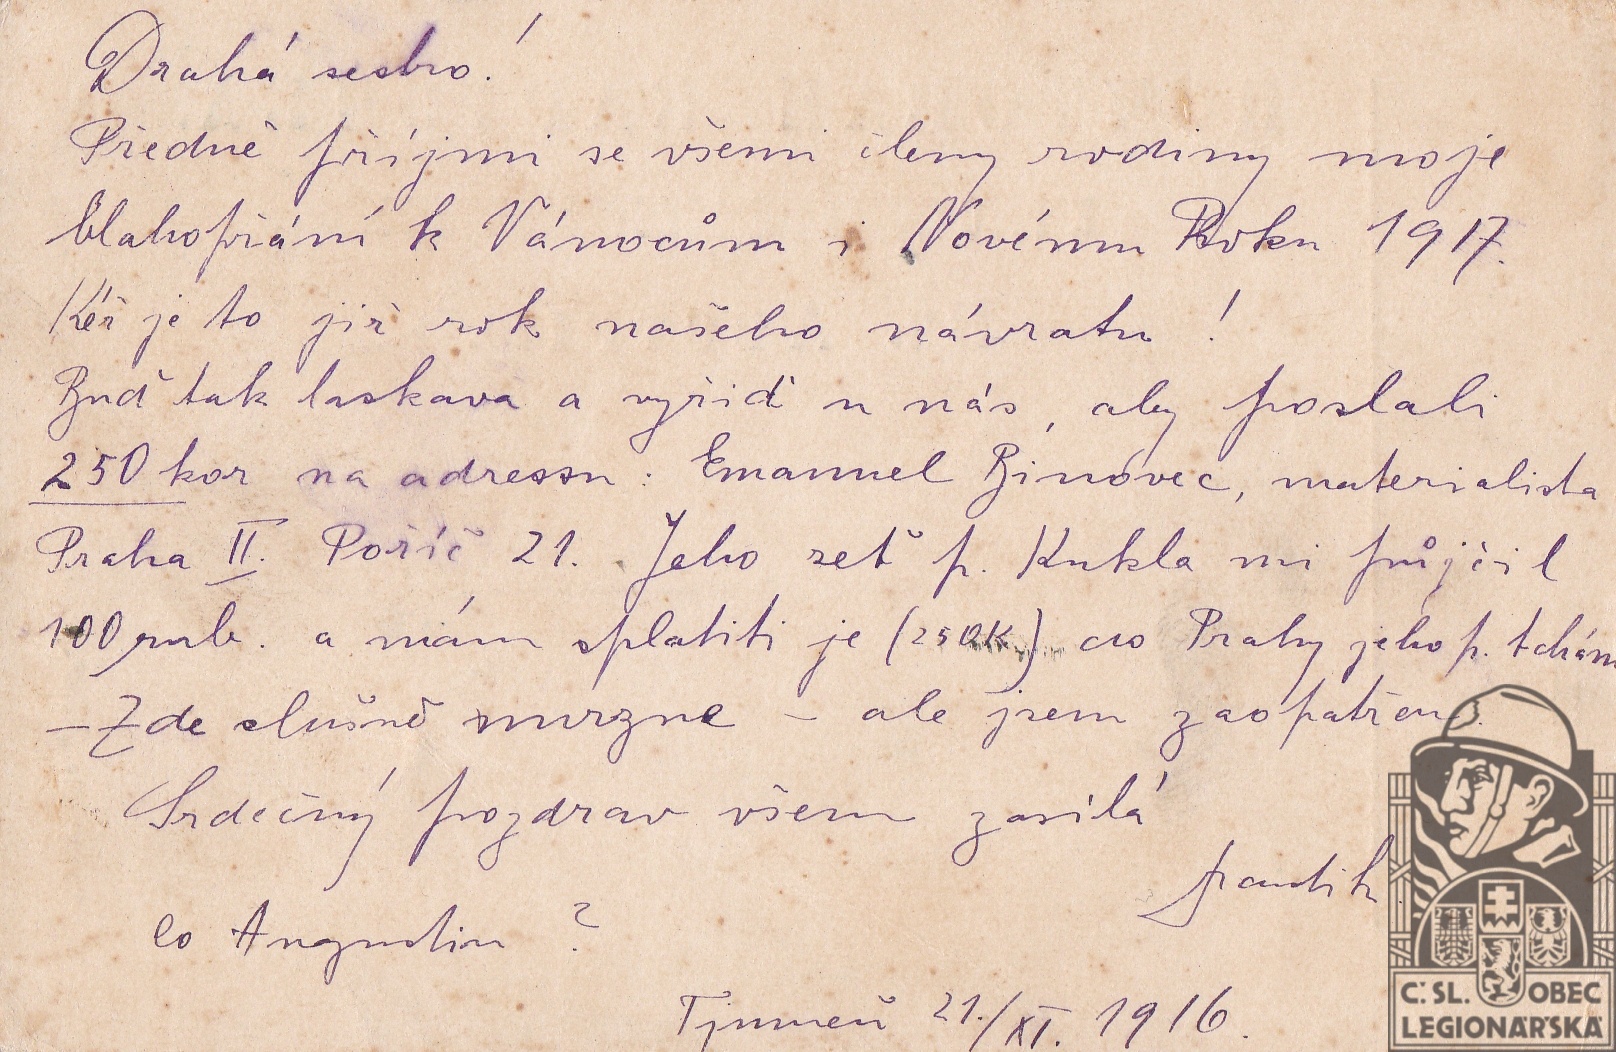 Drahá sestro!
Předně přijmi se všemi členy rodiny moje
blahopřání k Vánocům i Novému Roku 1917.
Kéž je to již rok našeho návratu!
Buď tak laskava a vyřiď u nás, aby poslali
250 kor na adressu: Emanuel Binovec, materialista
Praha II. Poříč 21. Jeho zeť p. Kukla mi půjčil
100 rub. a mám splatiti je (250K) do Prahy jeho p. tchánu
– Zde slušně mrzne – ale jsem zaopatřen.
Srdečný pozdrav všem zasílá
František
Co Augustin?
Tjumeň 21./XI. 1916.
Č. SL. OBEC
LEGIONÁŘSKÁ